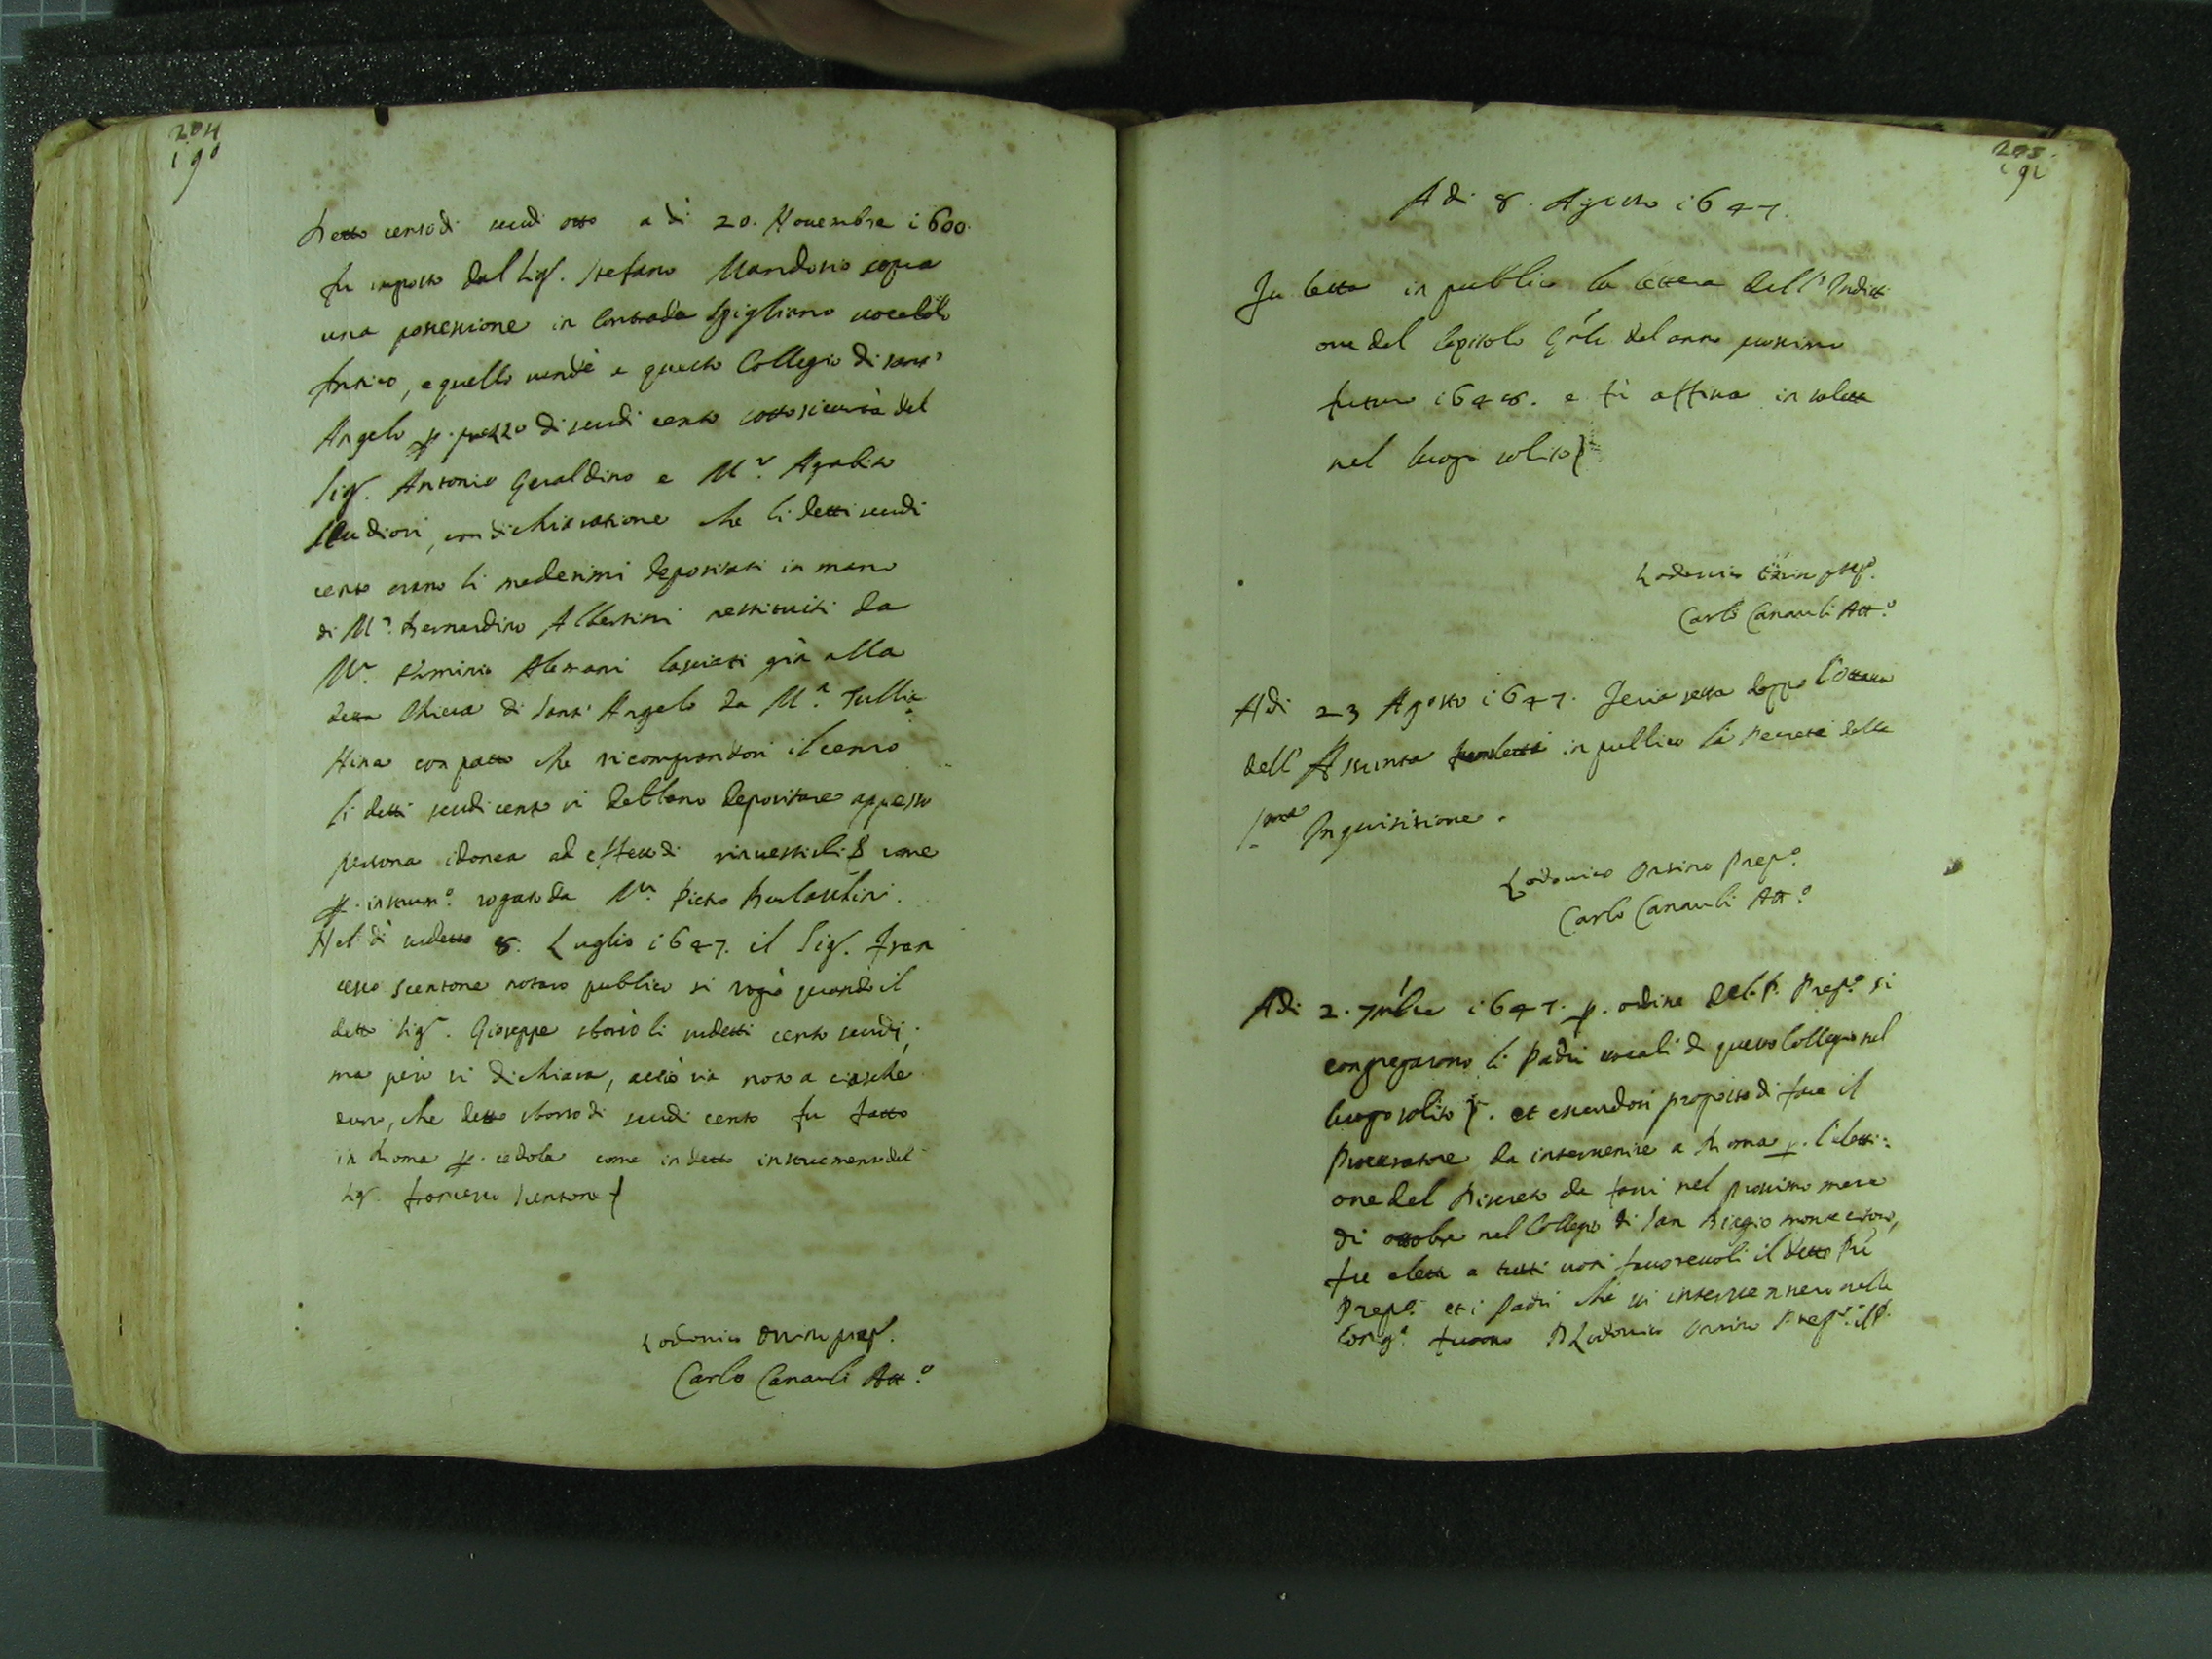 204
190
Detto censo di scudi otto a di 20. Nouembre i600.
fu imposto dal Sig.r Stefano Mandosio sopra
una possessione in Contrada Spigliano uocabolo
, e quello uendè a questo Collegio di Sant'
Angelo p. prezzo di scudi cento sotto sicurtà del
Sig.r Antonio Geraldino e M.r Agabito
, con dichiaratione che li detti scudi
cento erano li medesimi depositati in mano
di M.r Bernardino Albertini restituiti da
M.r Flaminio Alemani lasciati già alla
detta Chiesa di Sant' Angelo da M.a Tullia
Nina con patto che ricomprandosi il censo
li detti scudi cento si debbano depositare appresso
persona idonea ad effetto di rinuestirli & come
p. instrum.o rogato da M.r Pietro
Nel di sudetto 8. Luglio i647. il Sig.r Fran
cesco Scentone notaro publico si rogò quando il
detto Sig.r Gioseppe sborsò li sudetti cento scudi,
ma però si dichiara, acciò sia noto a ciasche
duno, che detto sborso di scudi cento fu fatto
in Roma p. cedola come in detto instrumento del
Sig.r Francesco Scentone
Lodouico Orsino prep.
Carlo Canauli Att.o
205.
191
A di 8. Agosto i647.
Fu letta in publico la lettera dell' Inditti
one del Capitolo G'nle del anno prossimo
futuro i648. e fu affissa in
nel luogo solito
Lodouico Orsino prep.o
Carlo Canauli Att.o
A di 23 Agosto i647. Feria sesta doppo l'ottaua
dell' Assunta in publico li Decreti della
S.ma Inquisitione.
Lodouico Orsino Prep.o
Carlo Canauli Att.o
A di 2. 7mbre i647. p. ordine del P. Prep.o si
congregarono li Padri uocali di questo Collegio nel
luogo solito et essendosi proposto di fare il
Procuratore da interuenire a Roma p. l'eletti:
one del Discreto da farsi nel prossimo mese
di ottobre nel Collegio di San Biagio monte citorio,
fu eletto a tutti uoti fauoreuoli il detto P're
Prep.o et i Padri che ui interuennero nella
Cong.e furono P. Lodouico Orsino Prep.o il P.